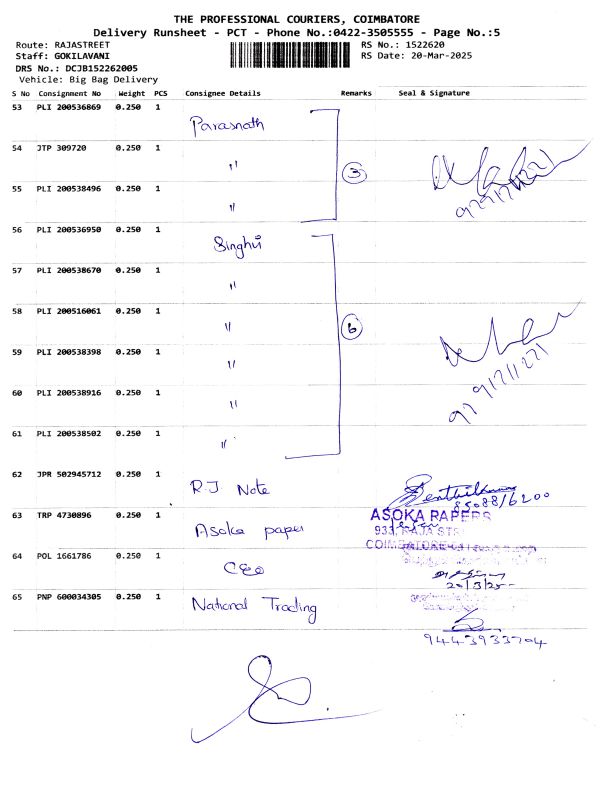 THE PROFESSIONAL COURIERS, COIMBATORE
Delivery Runsheet - PCT - Phone No.:0422-3505555 - Page No.:5
Route: RAJASTREET
RS No.: 1522620
Staff: GOKILAVANI
RS Date: 20-Mar-2025
DRS No.: DCJB152262005
Vehicle: Big Bag Delivery
S No Consignment No Weight PCS Consignee Details Remarks Seal & Signature
53 PLI 200536869 0.250 1 Parasnath
54 JTP 309720 0.250 1 "
3
55 PLI 200538496 0.250 1 "
56 PLI 200536950 0.250 1 Singhvi
57 PLI 200538670 0.250 1 "
58 PLI 200516061 0.250 1 "
6
59 PLI 200538398 0.250 1 "
60 PLI 200538916 0.250 1 "
61 PLI 200538502 0.250 1 "
62 JPR 502945712 0.250 1 R.J Note
63 TRP 4730896 0.250 1 Asoka paper
ASOKA PAPERS
933, RAJA ST
COIMBATORE
64 POL 1661786 0.250 1 CEO
20/3/25
65 PNP 600034305 0.250 1 National Trading
9443933704